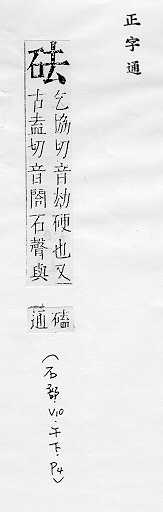 正字通
砝
乞協切音劫硬也又
古盍切音閤石聲與
磕
通
(石部.V10.午下.P4)